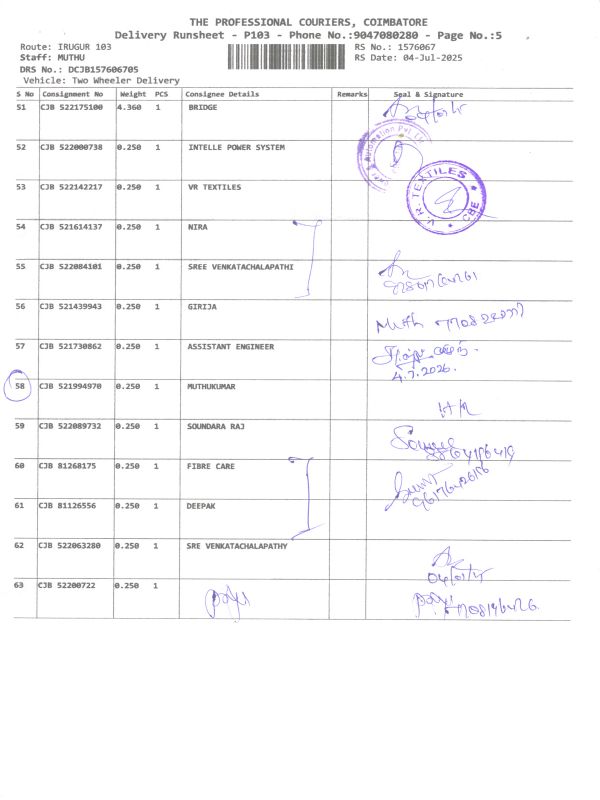 THE PROFESSIONAL COURIERS, COIMBATORE
Delivery Runsheet - P103 - Phone No.:9047080280 - Page No.:5
Route: IRUGUR 103 RS No.: 1576067
Staff: MUTHU RS Date: 04-Jul-2025
DRS No.: DCJB157606705
Vehicle: Two Wheeler Delivery
S No Consignment No Weight PCS Consignee Details Remarks Seal & Signature
51 CJB 522175100 4.360 1 BRIDGE
52 CJB 522000738 0.250 1 INTELLE POWER SYSTEM
Automation Pvt Ltd
53 CJB 522142217 0.250 1 VR TEXTILES
V. R. TEXTILES ★ CBE ★
54 CJB 521614137 0.250 1 NIRA
55 CJB 522084101 0.250 1 SREE VENKATACHALAPATHI
56 CJB 521439943 0.250 1 GIRIJA
57 CJB 521730862 0.250 1 ASSISTANT ENGINEER
4.7.2026.
58 CJB 521994970 1 0.250 MUTHUKUMAR
59 CJB 522089732 0.250 1 SOUNDARA RAJ
60 CJB 81268175 0.250 1 FIBRE CARE
61 CJB 81126556 0.250 1 DEEPAK
62 CJB 522063280 0.250 1 SRE VENKATACHALAPATHY
63 CJB 52200722 0.250 1